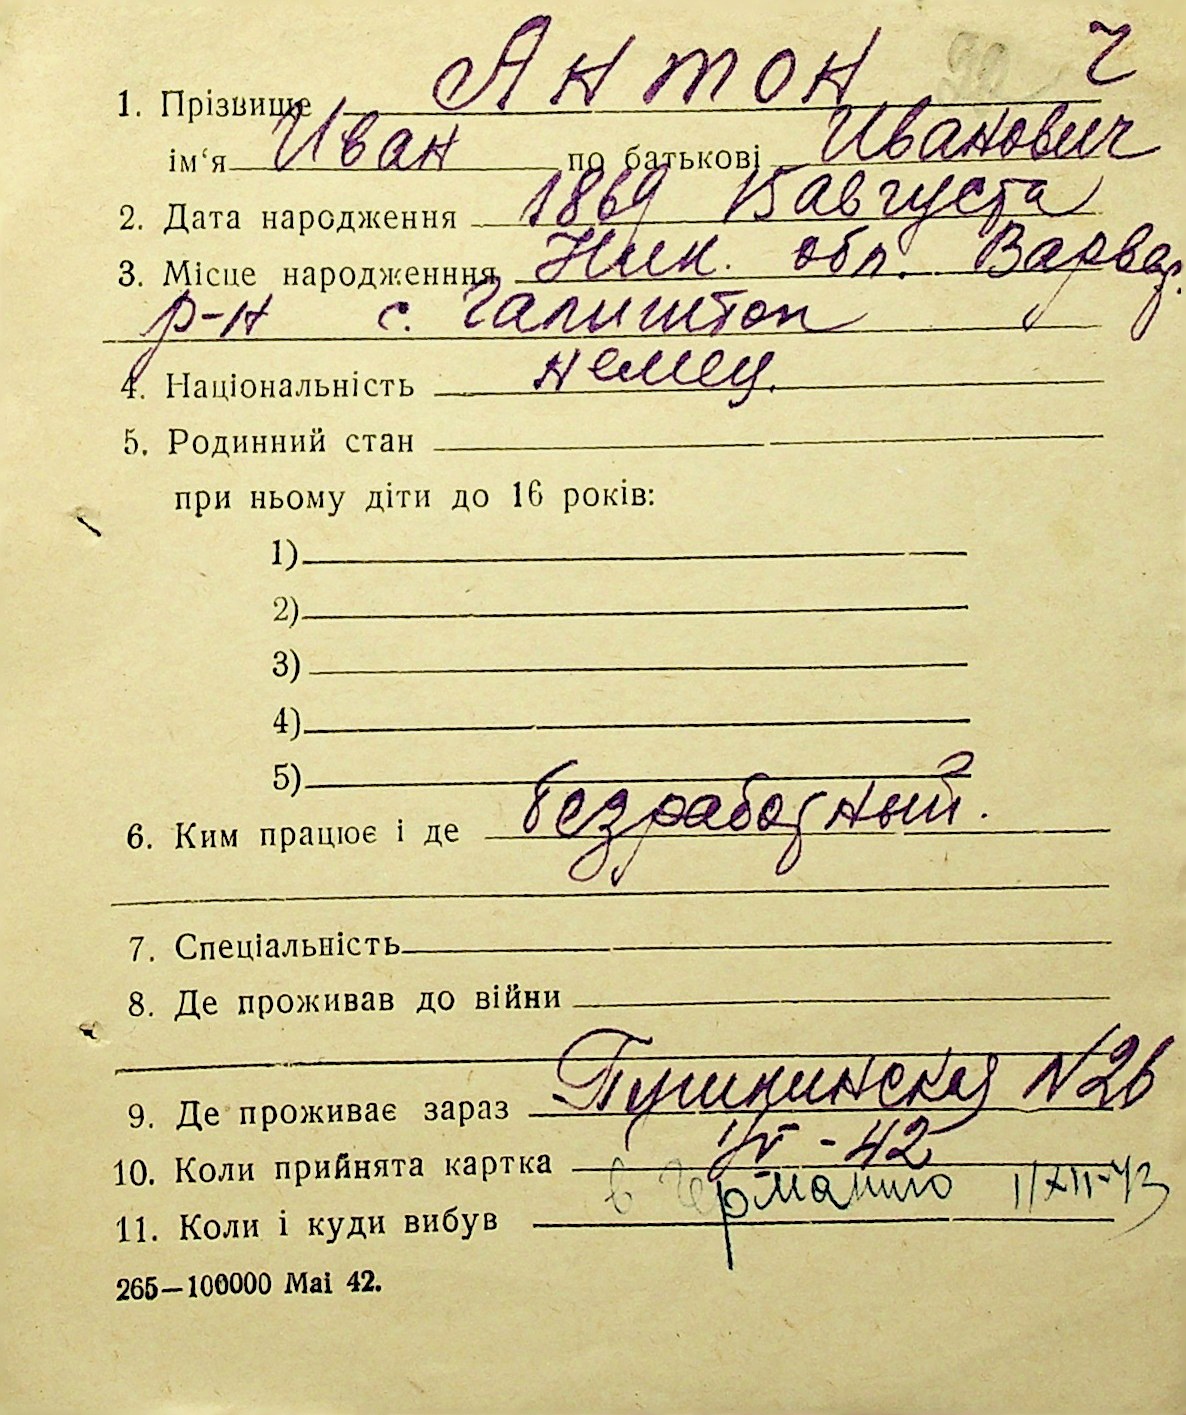 1. Прізвище Антон
ім‘я Иван по батькові Иванович
2. Дата народження 1869 15 августа
3. Місце народженння Ник. обл. Варвар.
р-н с.
4. Національність немец.
5. Родинний стан
при ньому діти до 16 років:
1)
2)
3)
4)
5)
6. Ким працює і де безработный.
7. Спеціальність
8. Де проживав до війни
9. Де проживає зараз Пушкинская N26
10. Коли прийнята картка -42
11. Коли і куди вибув в Германию 1/XII-43
265—100000 Mai 42.